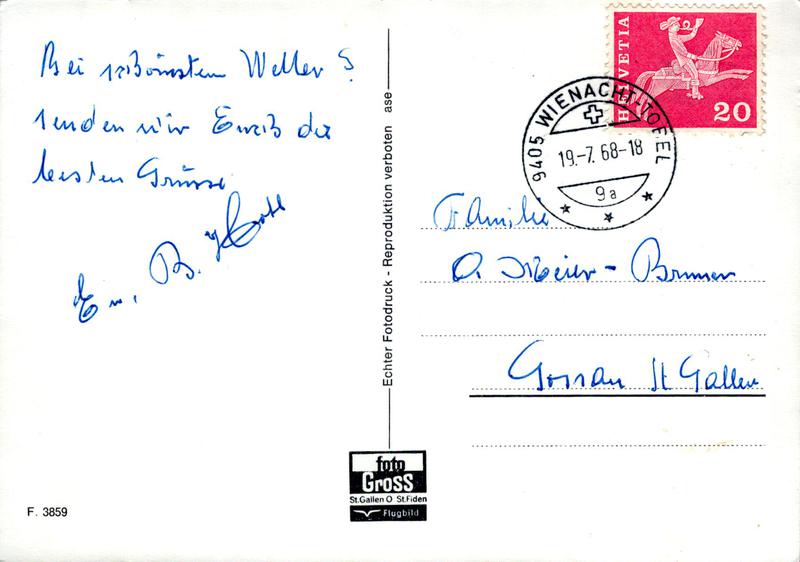 Bei schönstem Wetter
senden wir Euch die
besten Grüsse
B.
Echter Fotodruck - Reproduktion verboten ase
foto
Gross
St.Gallen O St.Fiden
Flugbild
F. 3859
HELVETIA
20
9405 WIENACHT-TOBEL
19.-7.68-18
9a
Familie
O. Meier - Brunner
Gossau St Gallen